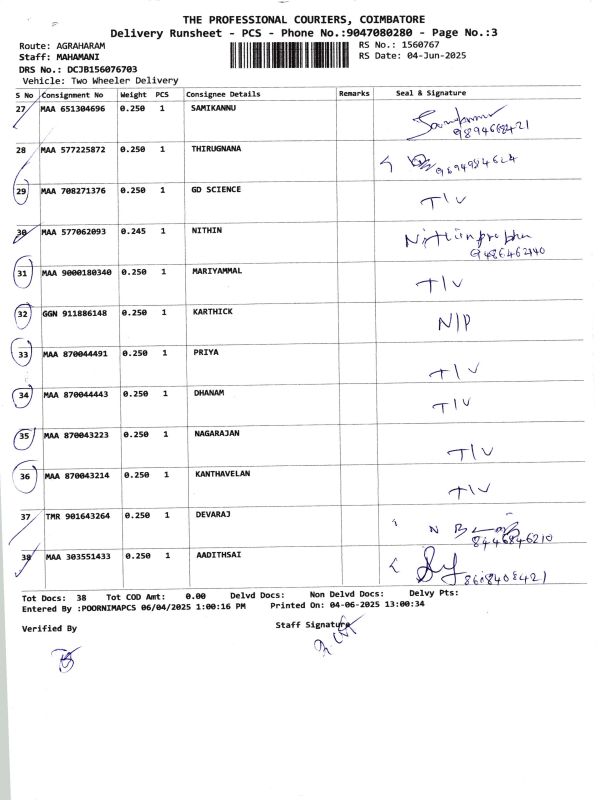 THE PROFESSIONAL COURIERS, COIMBATORE
Delivery Runsheet - PCS - Phone No.:9047080280 - Page No.:3
Route: AGRAHARAM RS No.: 1560767
Staff: MAHAMANI RS Date: 04-Jun-2025
DRS No.: DCJB156076703
Vehicle: Two Wheeler Delivery
S No Consignment No Weight PCS Consignee Details Remarks Seal & Signature
27 MAA 651304696 0.250 1 SAMIKANNU
9894668421
28 MAA 577225872 0.250 1 THIRUGNANA
29 MAA 708271376 0.250 1 GD SCIENCE T/V
30 MAA 577062093 0.245 1 NITHIN
31 MAA 9000180340 0.250 1 MARIYAMMAL T/V
32 GGN 911886148 0.250 1 KARTHICK N/P
33 MAA 870044491 0.250 1 PRIYA T/V
34 MAA 870044443 0.250 1 DHANAM T/V
35 MAA 870043223 0.250 1 NAGARAJAN T/V
36 MAA 870043214 0.250 1 KANTHAVELAN T/V
37 TMR 901643264 0.250 1 DEVARAJ
8446846210
38 MAA 303551433 0.250 1 AADITHSAI
8608408421
Tot Docs: 38 Tot COD Amt: 0.00 Delvd Docs: Non Delvd Docs: Delvy Pts:
Entered By :POORNIMAPCS 06/04/2025 1:00:16 PM Printed On: 04-06-2025 13:00:34
Verified By Staff Signature